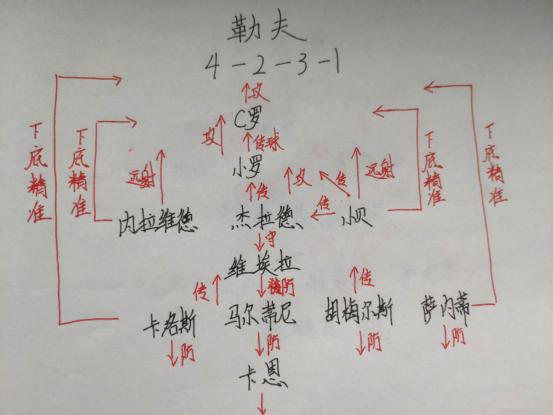 勒夫
4-2-3-1
攻
C罗
攻 传球
小罗
远射 传 攻 传 远射
下底精准 下底精准 下底精准 下底精准
内拉维德 杰拉德 传 小贝
守
维埃拉
传 防 传
卡洛斯 马尔蒂尼 胡梅尔斯 萨内蒂
防 防 防 防
卡恩